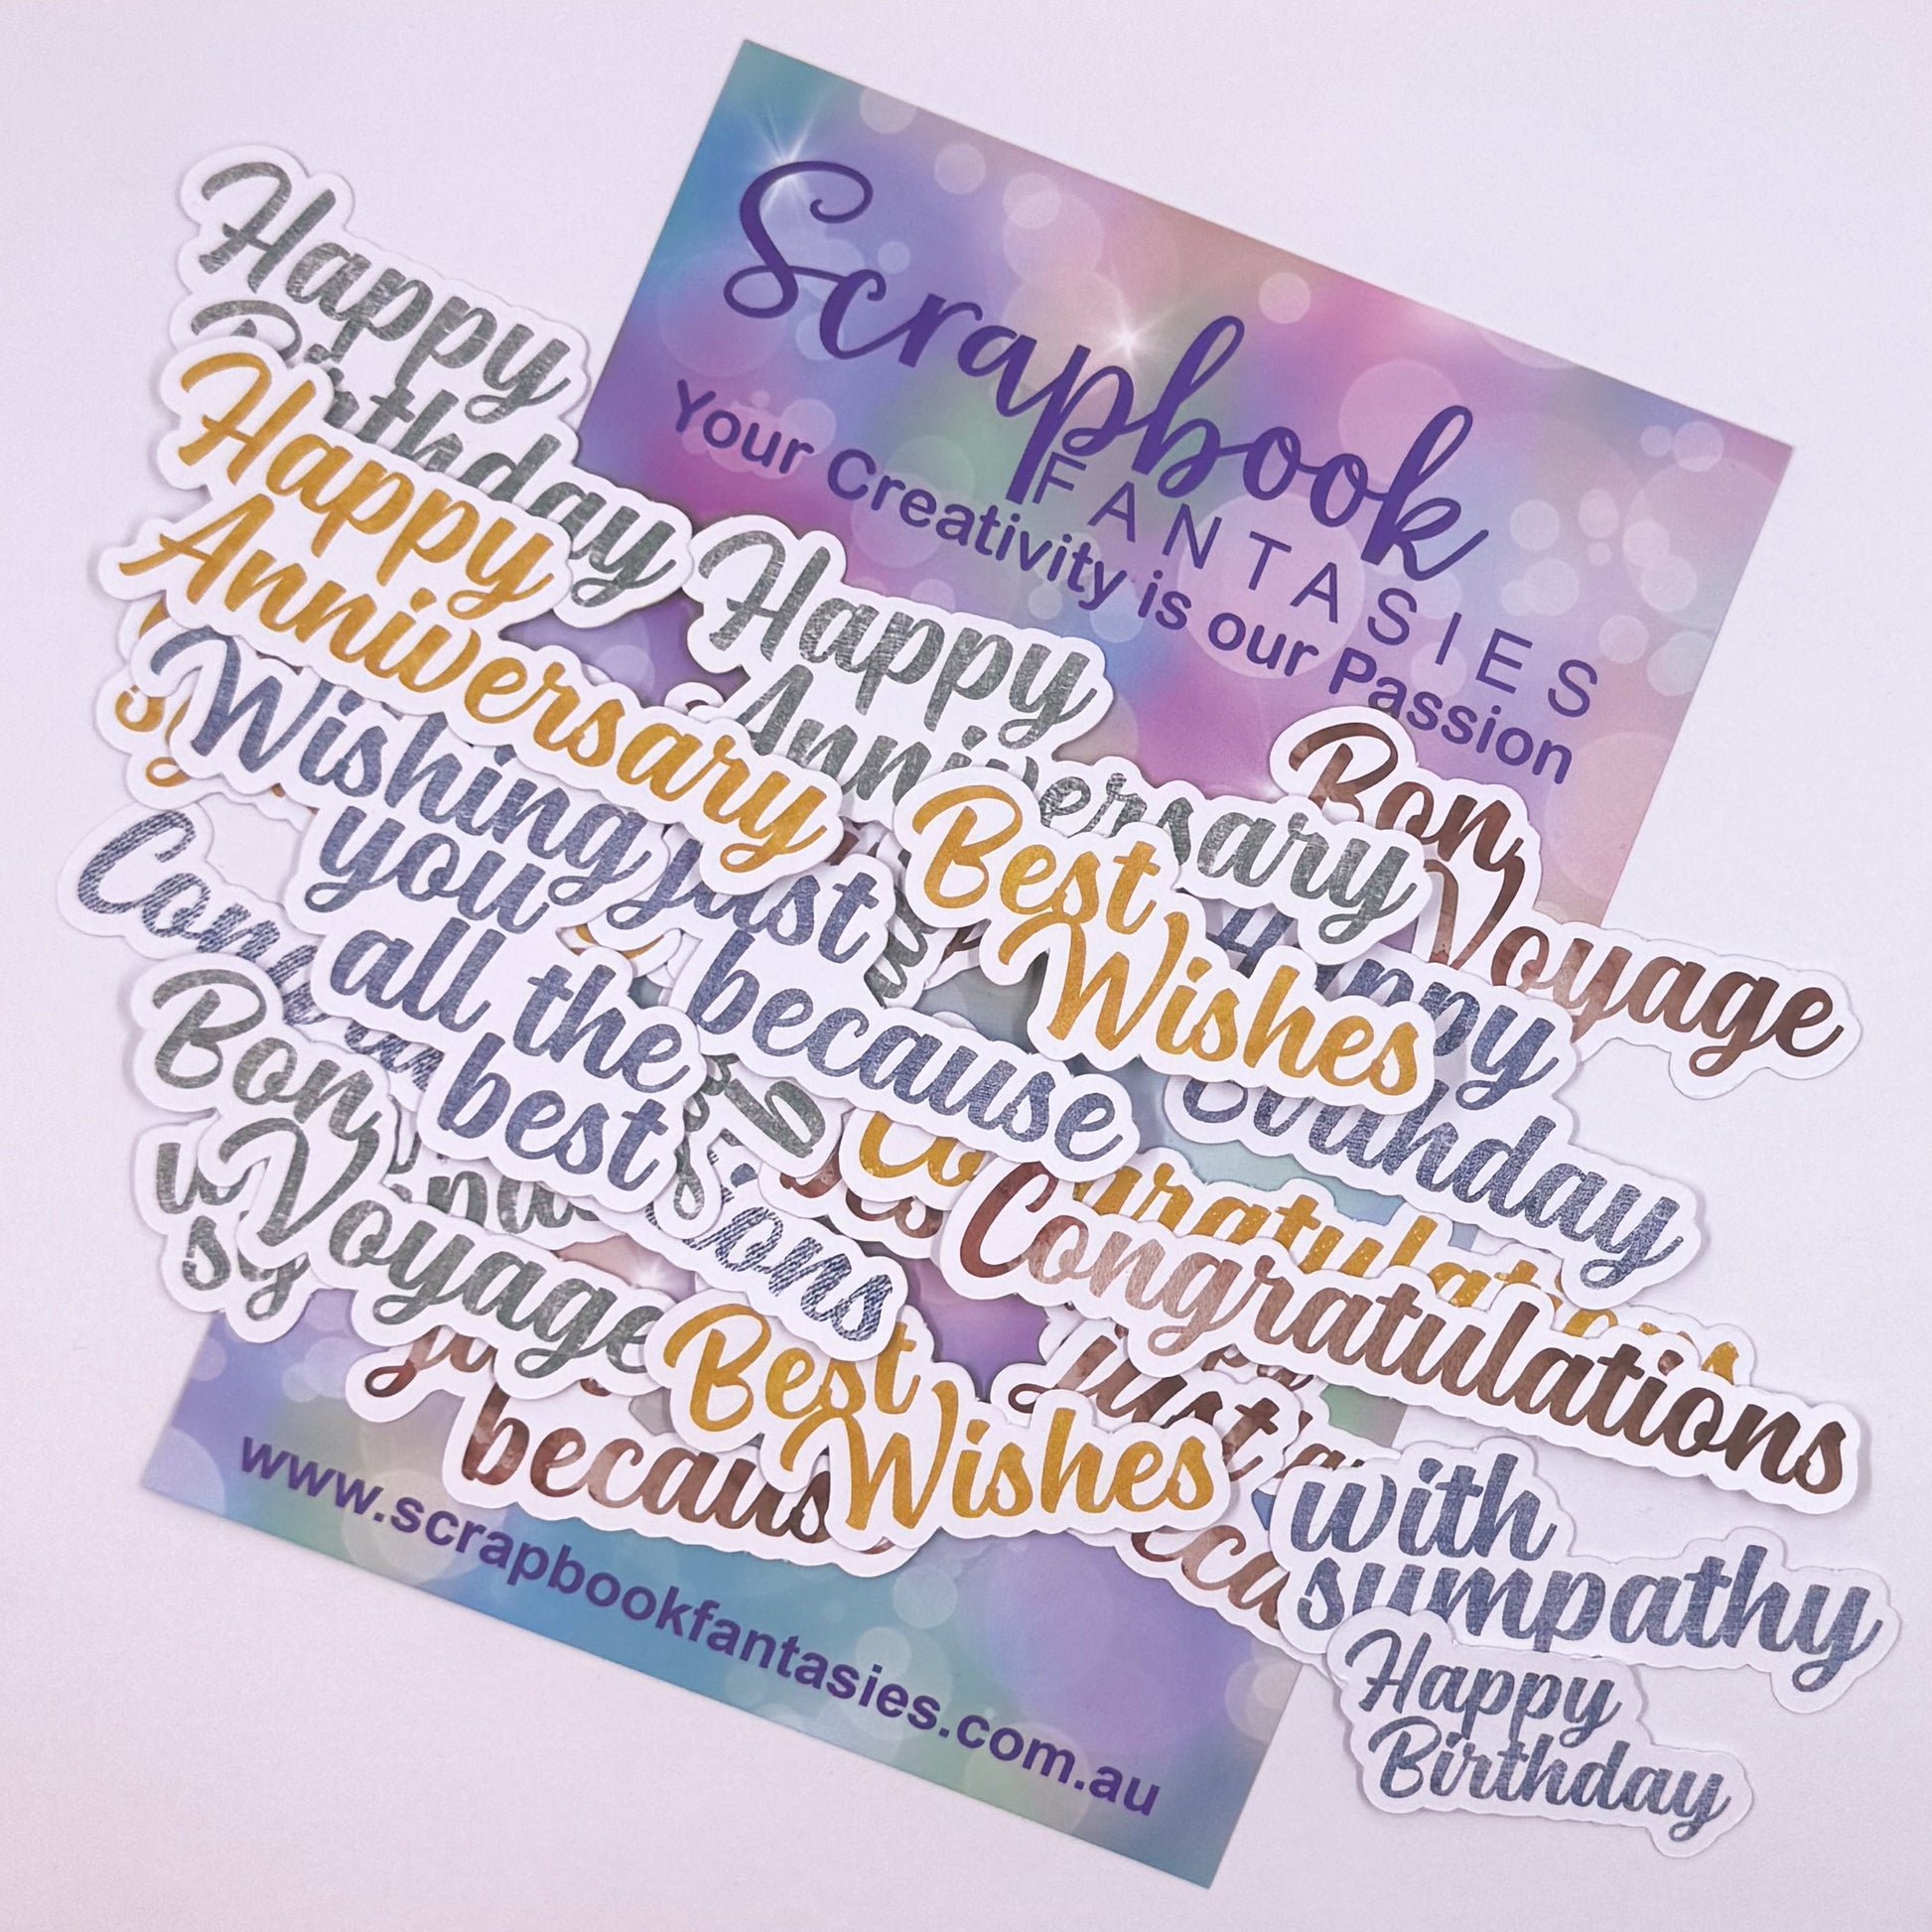 Scrapbook
FANTASIES
Your Creativity is our Passion
Happy
Birthday
Happy
Anniversary
Happy
Anniversary
Bon
Voyage
Wishing
you
all the
best
just
because
Best
Wishes
Happy
Birthday
Bon
Voyage
Congratulations
Congratulations
Best
Wishes
because
just
with
sympathy
Happy
Birthday
www.scrapbookfantasies.com.au